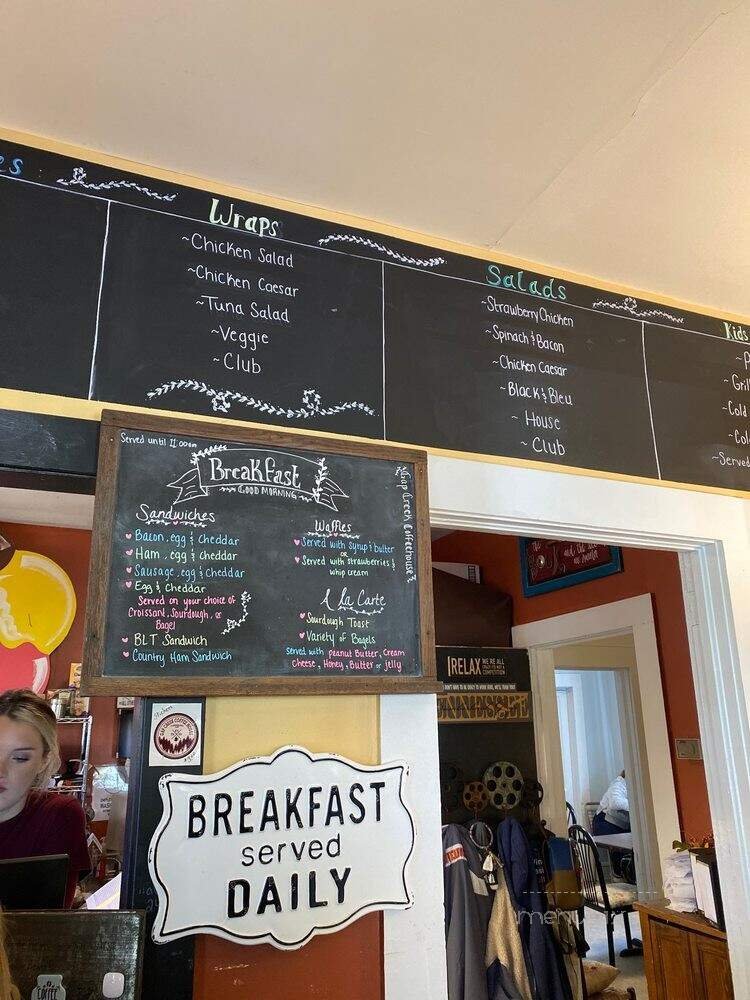 es
Wraps
~Chicken Salad
~Chicken Caesar
~Tuna Salad
~Veggie
~Club
Salads
~Strawberry Chicken
~Spinach & Bacon
~Chicken Caesar
~Black & Bleu
~ House
~ Club
Kids
~Gril
~Cold
~Col
~Served
Served until 11:00am
Breakfast
GOOD MORNING
Gap Creek Coffeehouse
Sandwiches
Bacon, egg & cheddar
Ham, egg & cheddar
Sausage, egg & cheddar
Egg & Cheddar
Served on your choice of
Croissant, Sourdough, or
Bagel
BLT Sandwich
Country Ham Sandwich
Waffles
Served with syrup & butter
OR
Served with strawberries &
whip cream
A La Carte
Sourdough Toast
Variety of Bagels
served with peanut Butter, Cream
Cheese, Honey, Butter or jelly
BREAKFAST
served
DAILY
Stickers
RELAX WE'RE ALL
CRAZY IT'S NOT A
COMPETITION
ENNESSEE
coffee
menu